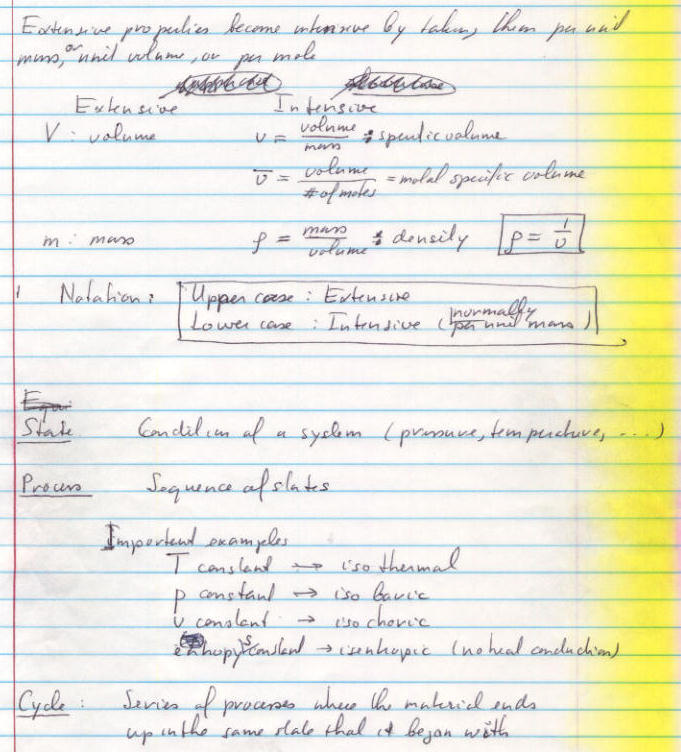 Extensive properties become intensive by taking them per unit
mass, or unit volume, or per mole
Extensive Intensive
V : volume v = volume/mass : specific volume
v̅ = volume/# of moles = molal specific volume
m : mass ρ = mass/volume : density ρ = 1/v
Notation : Upper case : Extensive
Lower case : Intensive (normally per unit mass)
State Condition of a system (pressure, temperature, ...)
Process Sequence of states
Important examples
T constant → iso thermal
p constant → iso baric
v constant → iso choric
entropy s constant → isentropic (no heat conduction)
Cycle : Series of processes where the material ends
up in the same state that it began with